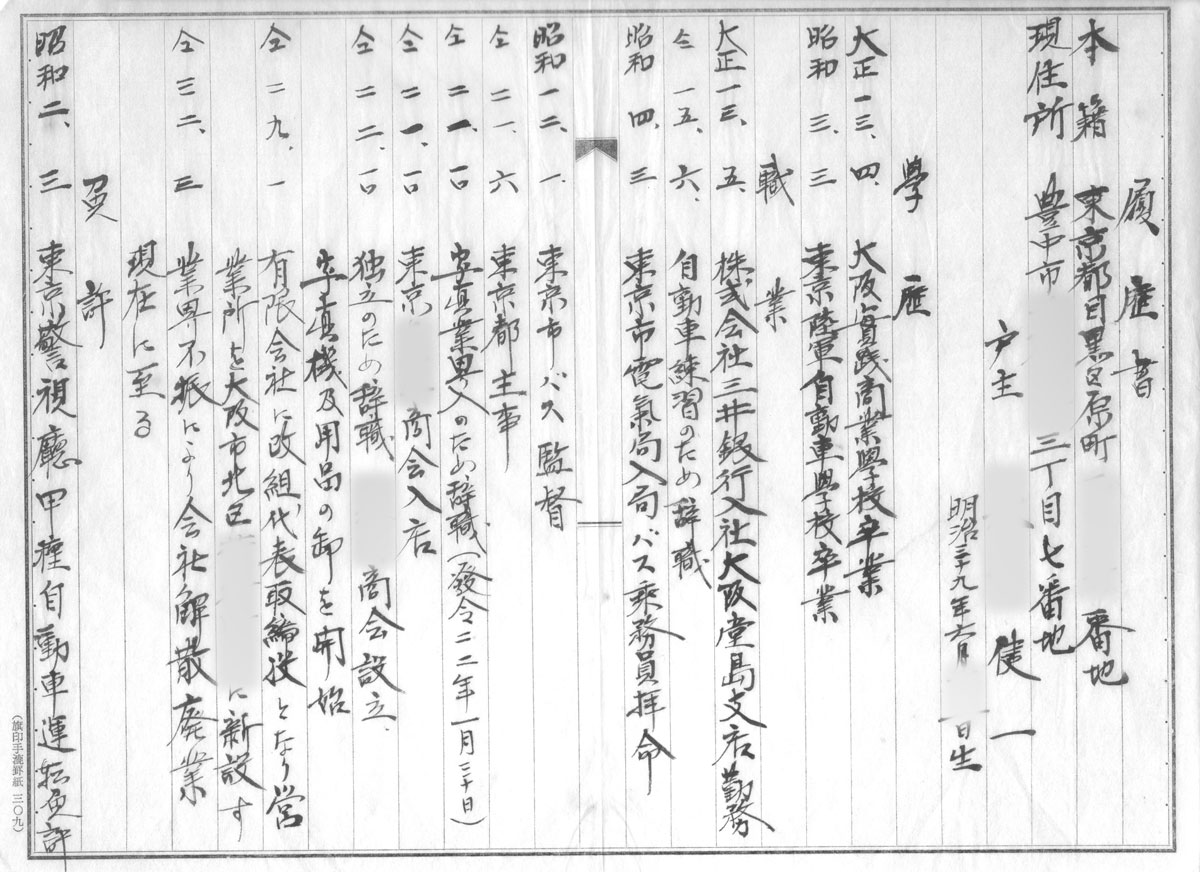 履歴書
本籍 東京都目黒区原町 番地
現住所 豊中市 三丁目七番地
戸主 健一
明治三十九年六月 日生
學歴
大正一三、四、 大阪實践商業學校卒業
昭和 三、三 東京陸軍自動車學校卒業
職業
大正一三、五、 株式会社三井銀行入社大阪堂島支店勤務
仝 一五、六、 自動車練習のため辞職
昭和 四、三 東京市電氣局入局バス乗務員拝命
昭和一二、一 東京市バス監督
仝 二一、六 東京都主事
仝 二一、一〇 写真業界入のため、辞職(發令二二年一月三十日)
仝 二一、一〇 東京 商会入店
仝 二二、一〇 独立のため辞職 商会設立、
写真機及用品の卸を開始
仝 二九、一 有限会社に改組、代表取締役となり営
業所を大阪市北区 に新設す
仝 三二、三 業界不振により会社解散廃業
現在に至る
免許
昭和二、三 東京警視廳甲種自動車運転免許
(旗印手漉罫紙 三〇九)